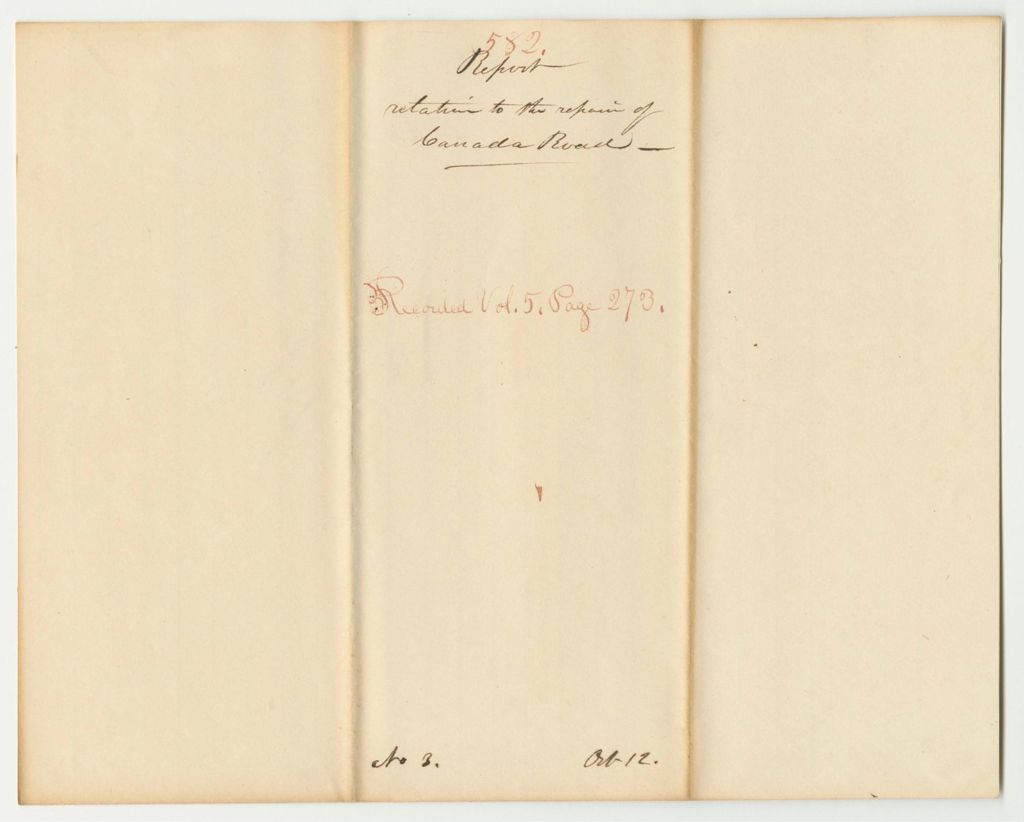 582.
Report
relation to the repair of
Canada Road —
Recorded Vol. 5. Page 273.
No 3.
Oct 12.